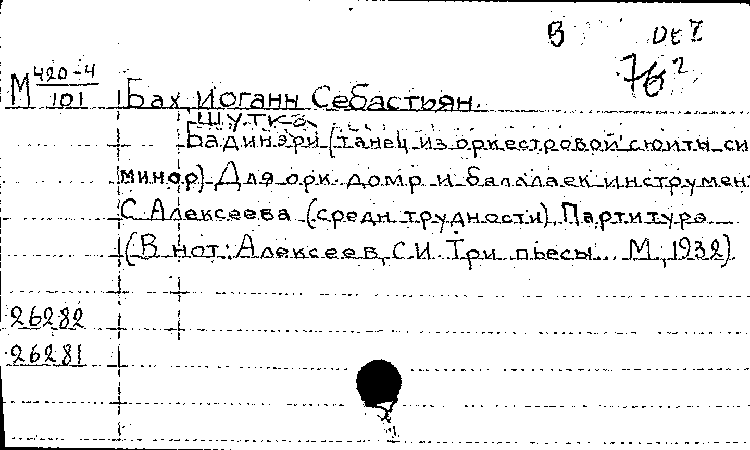 В
М 420-4
101
Бах, Иоганн Себастьян.
Шутка
Бадинэри (танец из оркестровой сюиты си
минор). Для орк. домр и балалаек инструмен
С. Алексеева (средн. трудности). Партитура
(В нот.: Алексеев, С.И. Три пьесы... М., 1932).
26282
26281